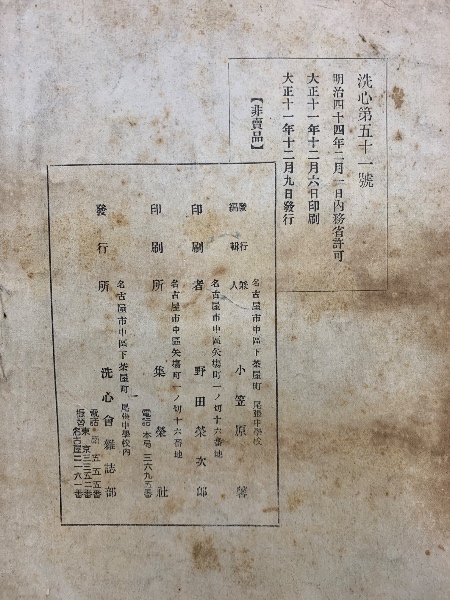 洗心第五十一號
明治四十四年二月一日內務省許可
大正十一年十二月六日印刷
大正十一年十二月九日發行
【非賣品】
發行兼
編輯人
名古屋市中區下茶屋町 尾張中學校
小笠原馨
印刷者
名古屋市中區矢場町一ノ切十六番地
野田榮次郎
印刷所
名古屋市中區矢場町一ノ切十六番地
集榮社
電話本局三六九五番
發行所
名古屋市中區下茶屋町 尾張中學校內
洗心會雜誌部
電話 五五五番
東京三三五二番
振替名古屋二一六一番